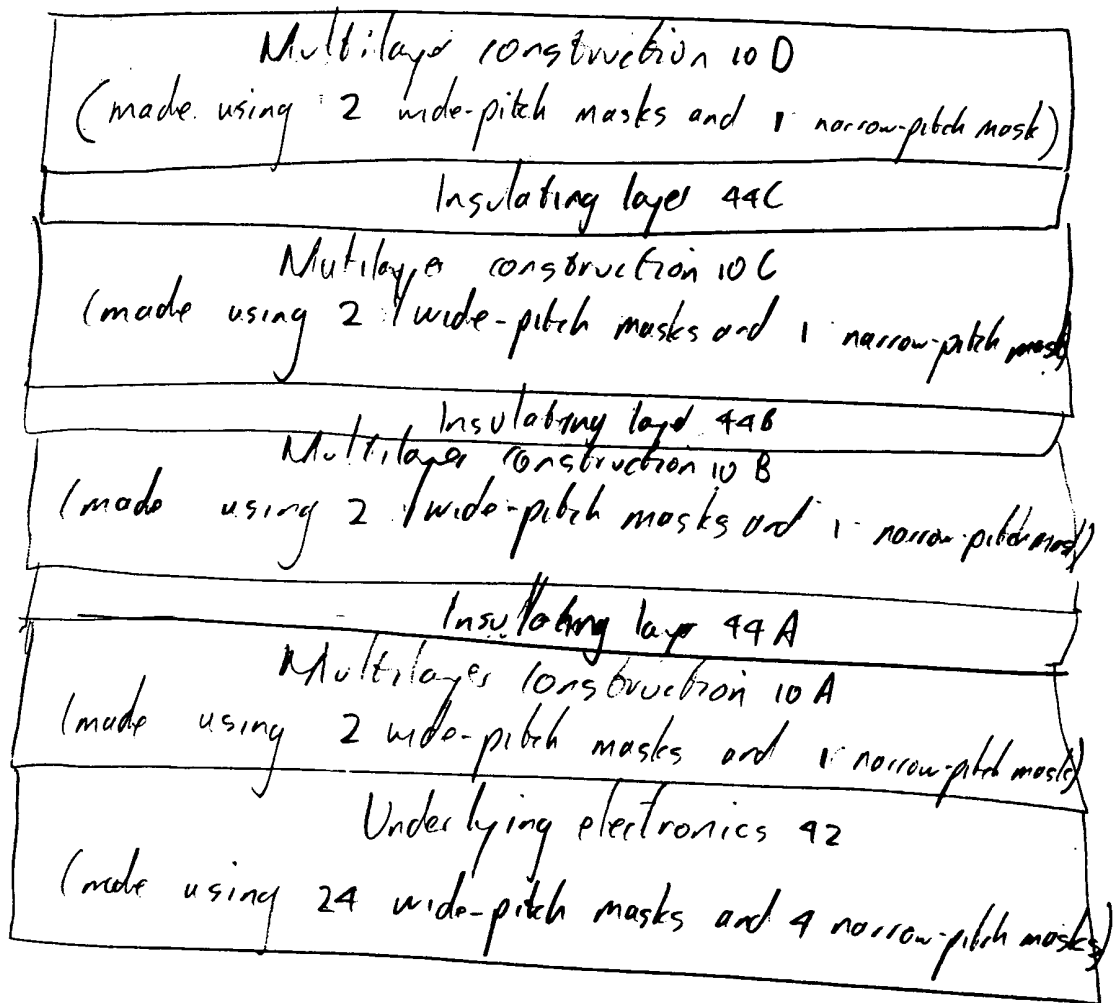 Multilayer construction 10 D
(made using 2 wide-pitch masks and 1 narrow-pitch mask)
Insulating layer 44C
Mutilayer construction 10 C
(made using 2 wide-pitch masks and 1 narrow-pitch mask)
Insulating layer 44B
Multilayer construction 10 B
(made using 2 wide-pitch masks and 1 narrow-pitch mask)
Insulating layer 44A
Multilayer construction 10 A
(made using 2 wide-pitch masks and 1 narrow-pitch mask)
Underlying electronics 42
(made using 24 wide-pitch masks and 4 narrow-pitch masks)